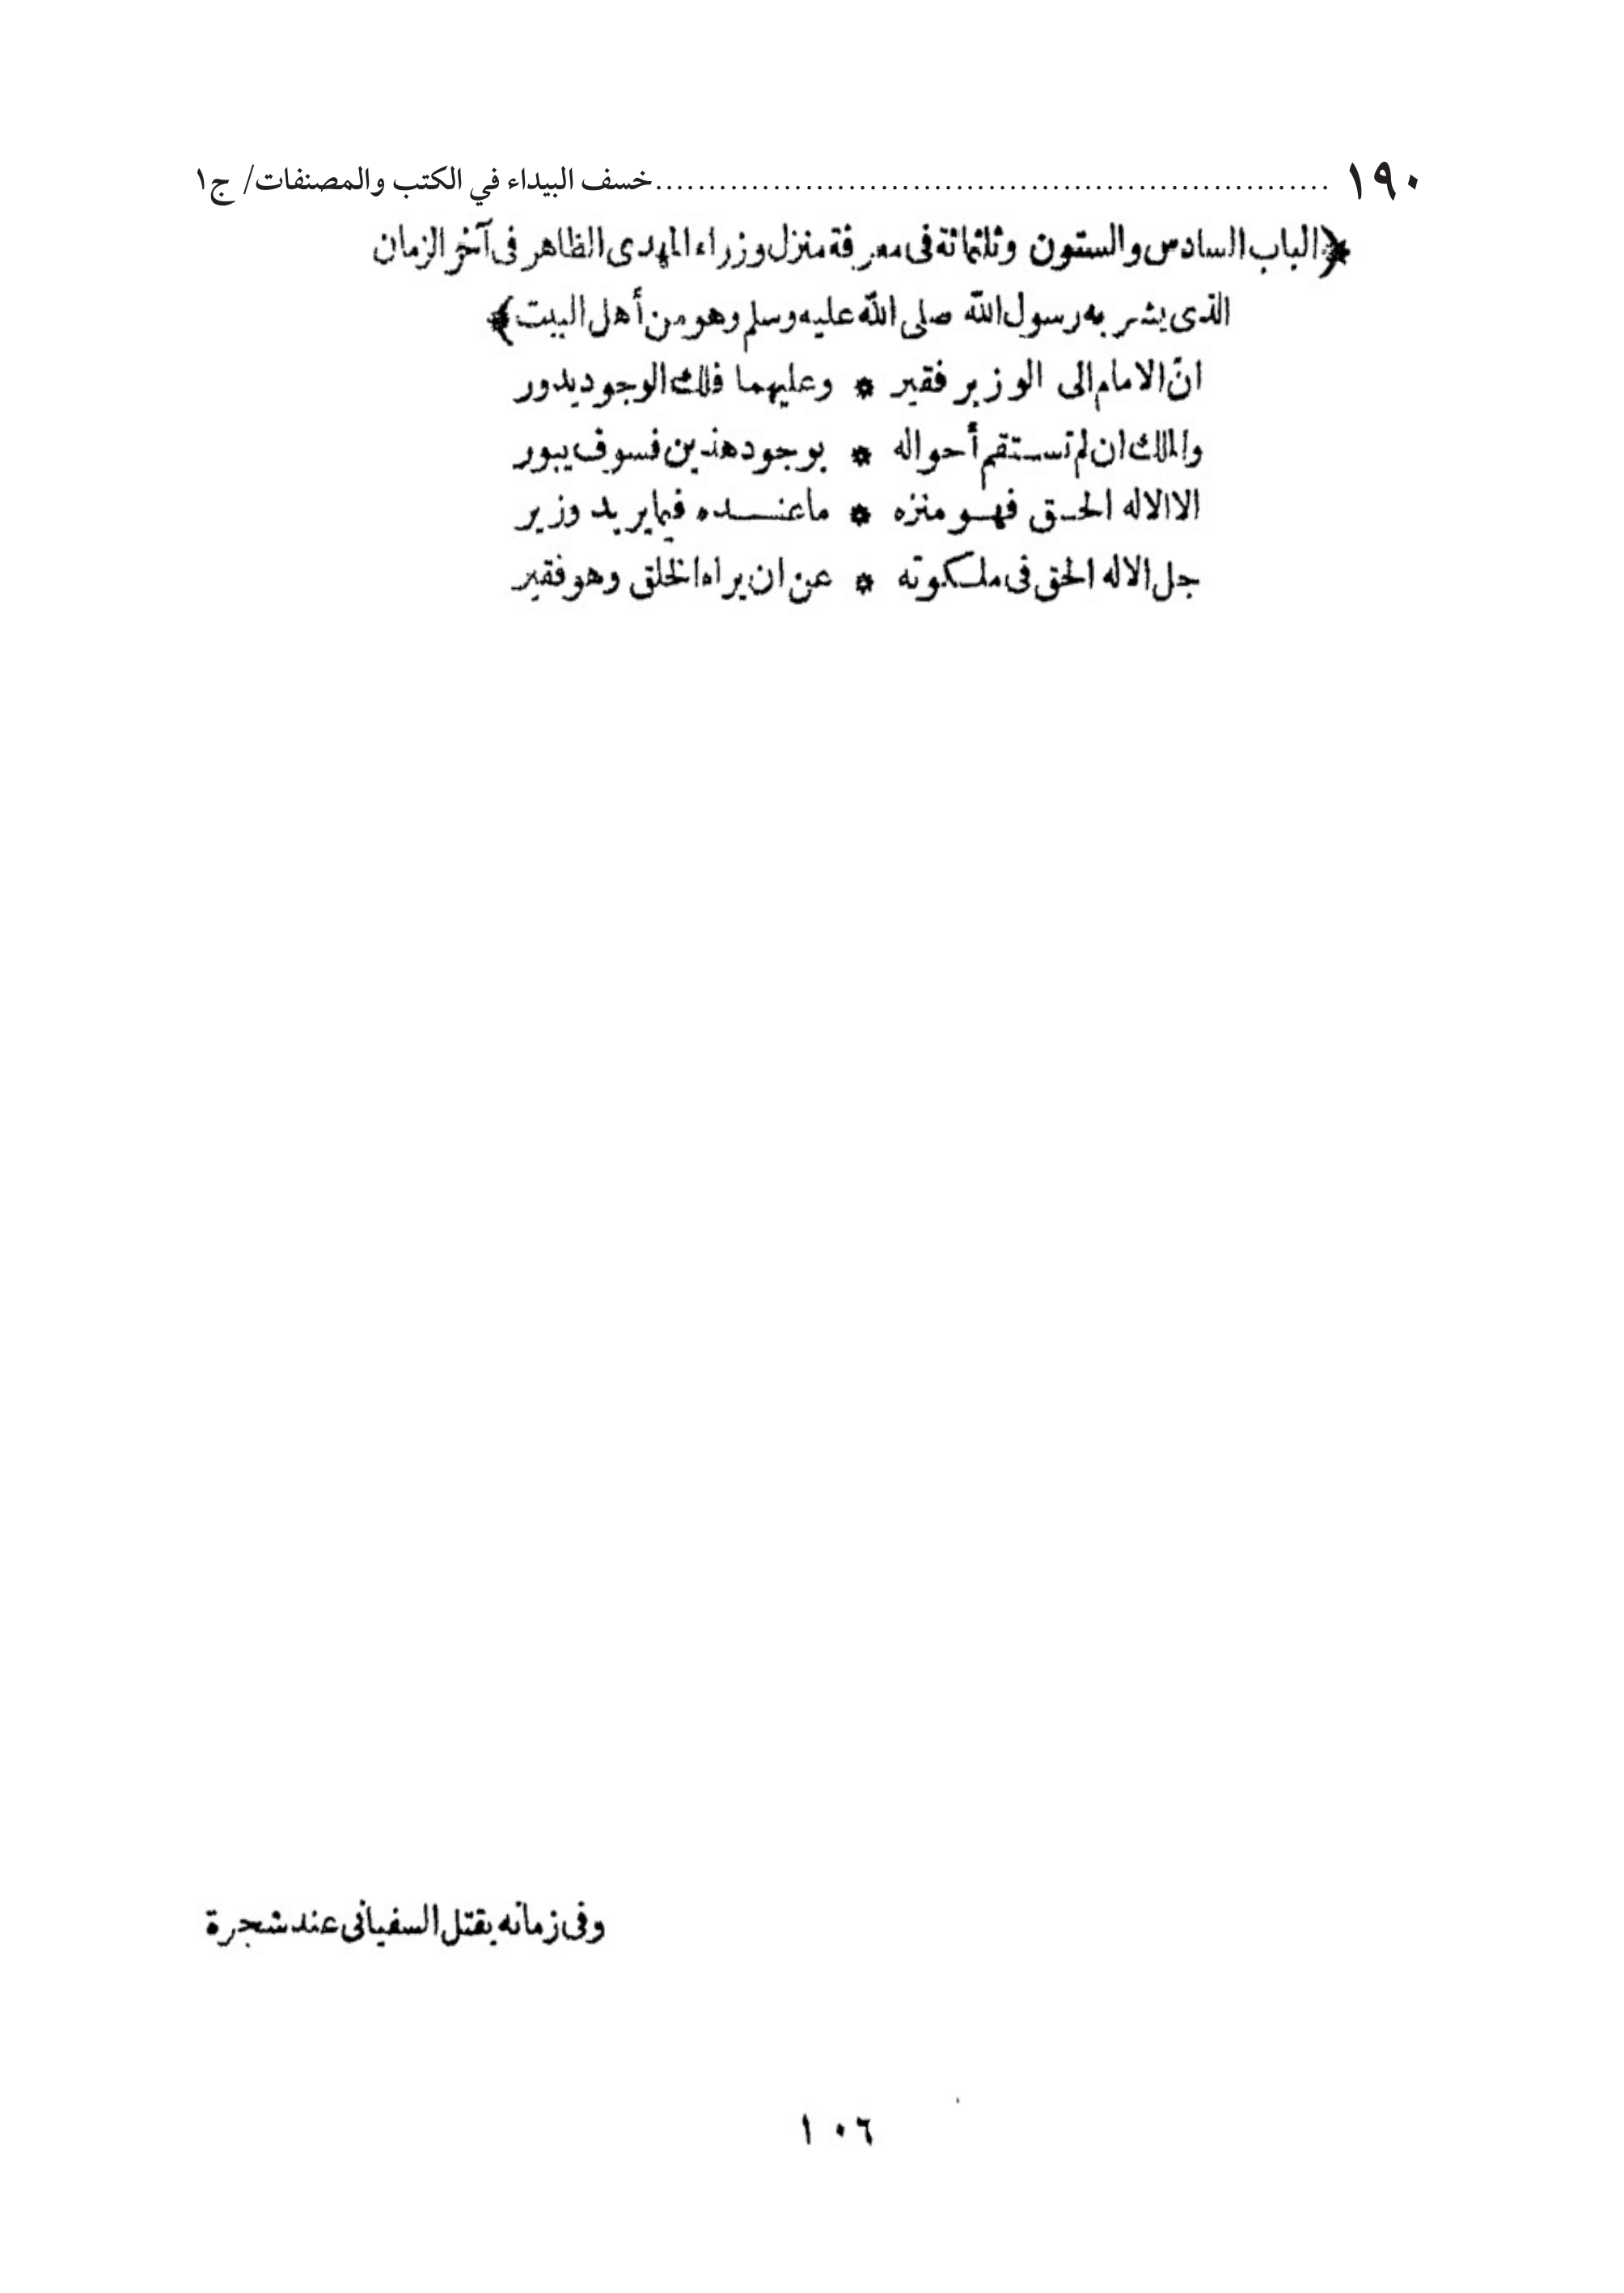 ١٩٠ ........................................................خسف البيداء في الكتب والمصنفات/ ج١
﴿الباب السادس والستون وثلثمائة فى معرفة منزل وزراء المهدى الظاهر فى آخر الزمان
الذى بشر به رسول الله صلى الله عليه وسلم وهو من أهل البيت﴾
انّ الامام الى الوزير فقير * وعليهما فلك الوجود يدور
والملك ان لم تستقم أحواله * بوجود هذين فسوف يبور
الا الاله الحق فهو منزه * ما عنده فيما يريد وزير
جل الاله الحق فى ملكوته * عن ان يراه الخلق وهو فقير
وفى زمانه يقتل السفيانى عند شجرة
١٠٦